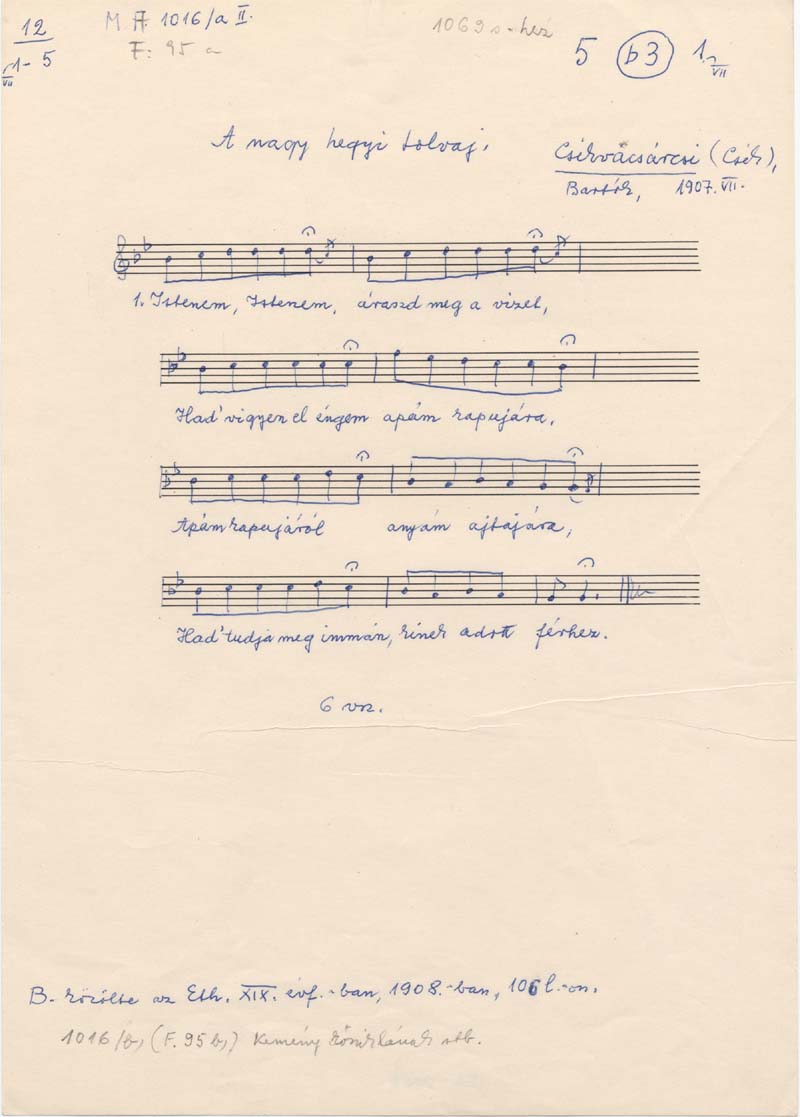 12
1-5
VII
M. F. 1016/a II.
F: 95 a
1069 s-hez
5 b3 1,
VII
A nagy hegyi tolvaj.
Csíkvacsárcsi (Csík),
Bartók, 1907. VII.
1. Istenem, Istenem, áraszd meg a vizet,
Had' vigyen el éngem apám kapujára,
Apám kapujáról anyám ajtajára,
Had' tudja meg immán, kinek adott férhez.
6 vsz.
B. közölte az Eth. XIX. évf.-ban, 1908.-ban, 106 l.-on.
1016/b, (F. 95 b,) Kemény kősziklának stb.